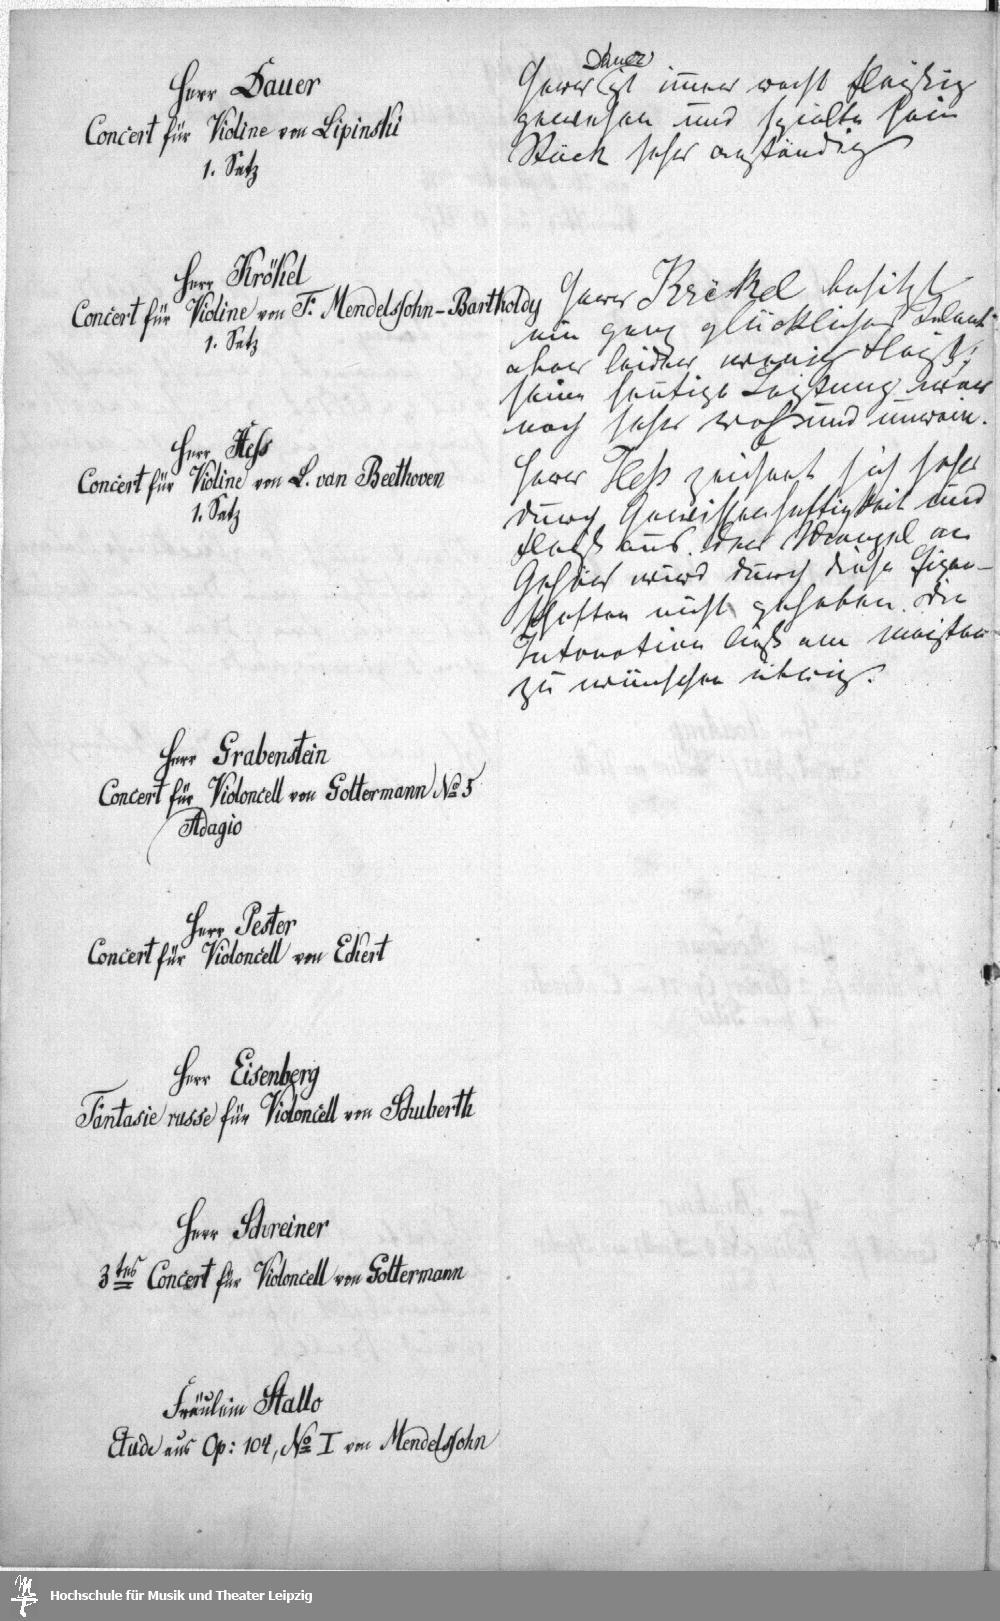 Herr Dauer
Concert für Violine von Lipinski
1. Satz
Dauer
Herr ist immer recht fleißig
gewesen und spielte sein
Stück sehr anständig
Herr Krökel
Concert für Violine von F. Mendelssohn-Bartholdy
1. Satz
Herr Krökel besitzt
ein ganz glückliches Talent
aber leider wenig Fleiß;
seine heutige Leistung war
noch sehr roh und unrein.
Herr Hess
Concert für Violine von L. van Beethoven
1. Satz
Herr Heß zeichnet sich sehr
durch Gewissenhaftigkeit und
Fleiß aus. Der Mangel an
Gehör wird durch diese Eigen-
schaften nicht gehoben. Die
Intonation ließ am meisten
zu wünschen übrig.
Herr Grabenstein
Concert für Violoncell von Goltermann No 5
Adagio
Herr Pester
Concert für Violoncell von Eckert
Herr Eisenberg
Fantasie russe für Violoncell von Schuberth
Herr Schreiner
3tes Concert für Violoncell von Goltermann
Fräulein Stallo
Etude aus Op: 104, No I von Mendelssohn
Hochschule für Musik und Theater Leipzig